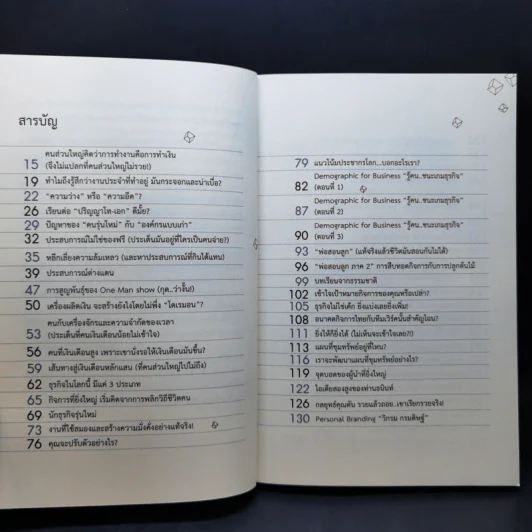 สารบัญ
คนส่วนใหญ่คิดว่าการทำงานคือการทำเงิน
15 (จึงไม่แปลกที่คนส่วนใหญ่ไม่รวย!)
19 ทำไมถึงรู้สึกว่างานประจำที่ทำอยู่ มันกระจอกและน่าเบื่อ?
22 "ความว่าง" หรือ "ความอึด"?
26 เรียนต่อ "ปริญญาโท-เอก" ดีมั้ย?
29 ปัญหาของ "คนรุ่นใหม่" กับ "องค์กรแบบเก่า"
32 ประสบการณ์ไม่ใช่ของฟรี (ประเด็นมันอยู่ที่ใครเป็นคนจ่าย?)
35 หลีกเลี่ยงความล้มเหลว (และหาประสบการณ์ที่กินได้แทน)
39 ประสบการณ์ต่างแดน
47 การสูญพันธุ์ของ One Man show (กุด..ว่างั้น!)
50 เครื่องผลิตเงิน จะสร้างยังไงโดยไม่พึ่ง "โดเรมอน"?
คนกับเครื่องจักรและความจำกัดของเวลา
53 (ประเด็นที่คนเงินเดือนน้อยไม่เข้าใจ)
56 คนที่เงินเดือนสูง เพราะเขานั่งรอให้เงินเดือนมันขึ้น?
59 เส้นทางสู่เงินเดือนหลักแสน (ที่คนส่วนใหญ่ไปไม่ถึง)
62 ธุรกิจในโลกนี้ มีแค่ 3 ประเภท
65 กิจการที่ยิ่งใหญ่ เริ่มคิดจากการพลิกวิธีชีวิตคน
69 นักธุรกิจรุ่นใหม่
73 งานที่ใช้สมองและสร้างความมั่งคั่งอย่างแท้จริง!
76 คุณจะปรับตัวอย่างไร?
79 แนวโน้มประชากรโลก...บอกอะไรเรา?
Demographic for Business "รู้คน..ชนะเกมธุรกิจ"
82 (ตอนที่ 1)
Demographic for Business "รู้คน..ชนะเกมธุรกิจ"
87 (ตอนที่ 2)
Demographic for Business "รู้คน..ชนะเกมธุรกิจ"
90 (ตอนที่ 3)
93 "พ่อสอนลูก" (แท้จริงแล้วชีวิตมันสอนกันไม่ได้)
96 "พ่อสอนลูก ภาค 2" การสืบทอดกิจการกับการปลูกต้นไม้
99 บทเรียนจากธรรมชาติ
102 เข้าใจเป้าหมายกิจการของคุณหรือเปล่า?
105 ธุรกิจไม่ใช่เค้ก ยิ่งแบ่งเลยยิ่งเพิ่ม!
108 อนาคตกิจการไทยกับทีมเวิร์คนั้นสำคัญไฉน?
111 ยิ่งให้ก็ยิ่งได้ (ไม่เห็นจะเข้าใจเลย?!)
113 แผนที่ขุมทรัพย์อยู่ที่ไหน?
116 เราจะพัฒนาแผนที่ขุมทรัพย์อย่างไร?
119 จุดบอดของผู้นำที่ยิ่งใหญ่
122 ไอเดียสองสูงของท่านธนินท์
126 กลยุทธ์คุณตัน รวยแล้วถอย..เขาเรียกรวยจริง!
130 Personal Branding "วิกรม กรมดิษฐ์"